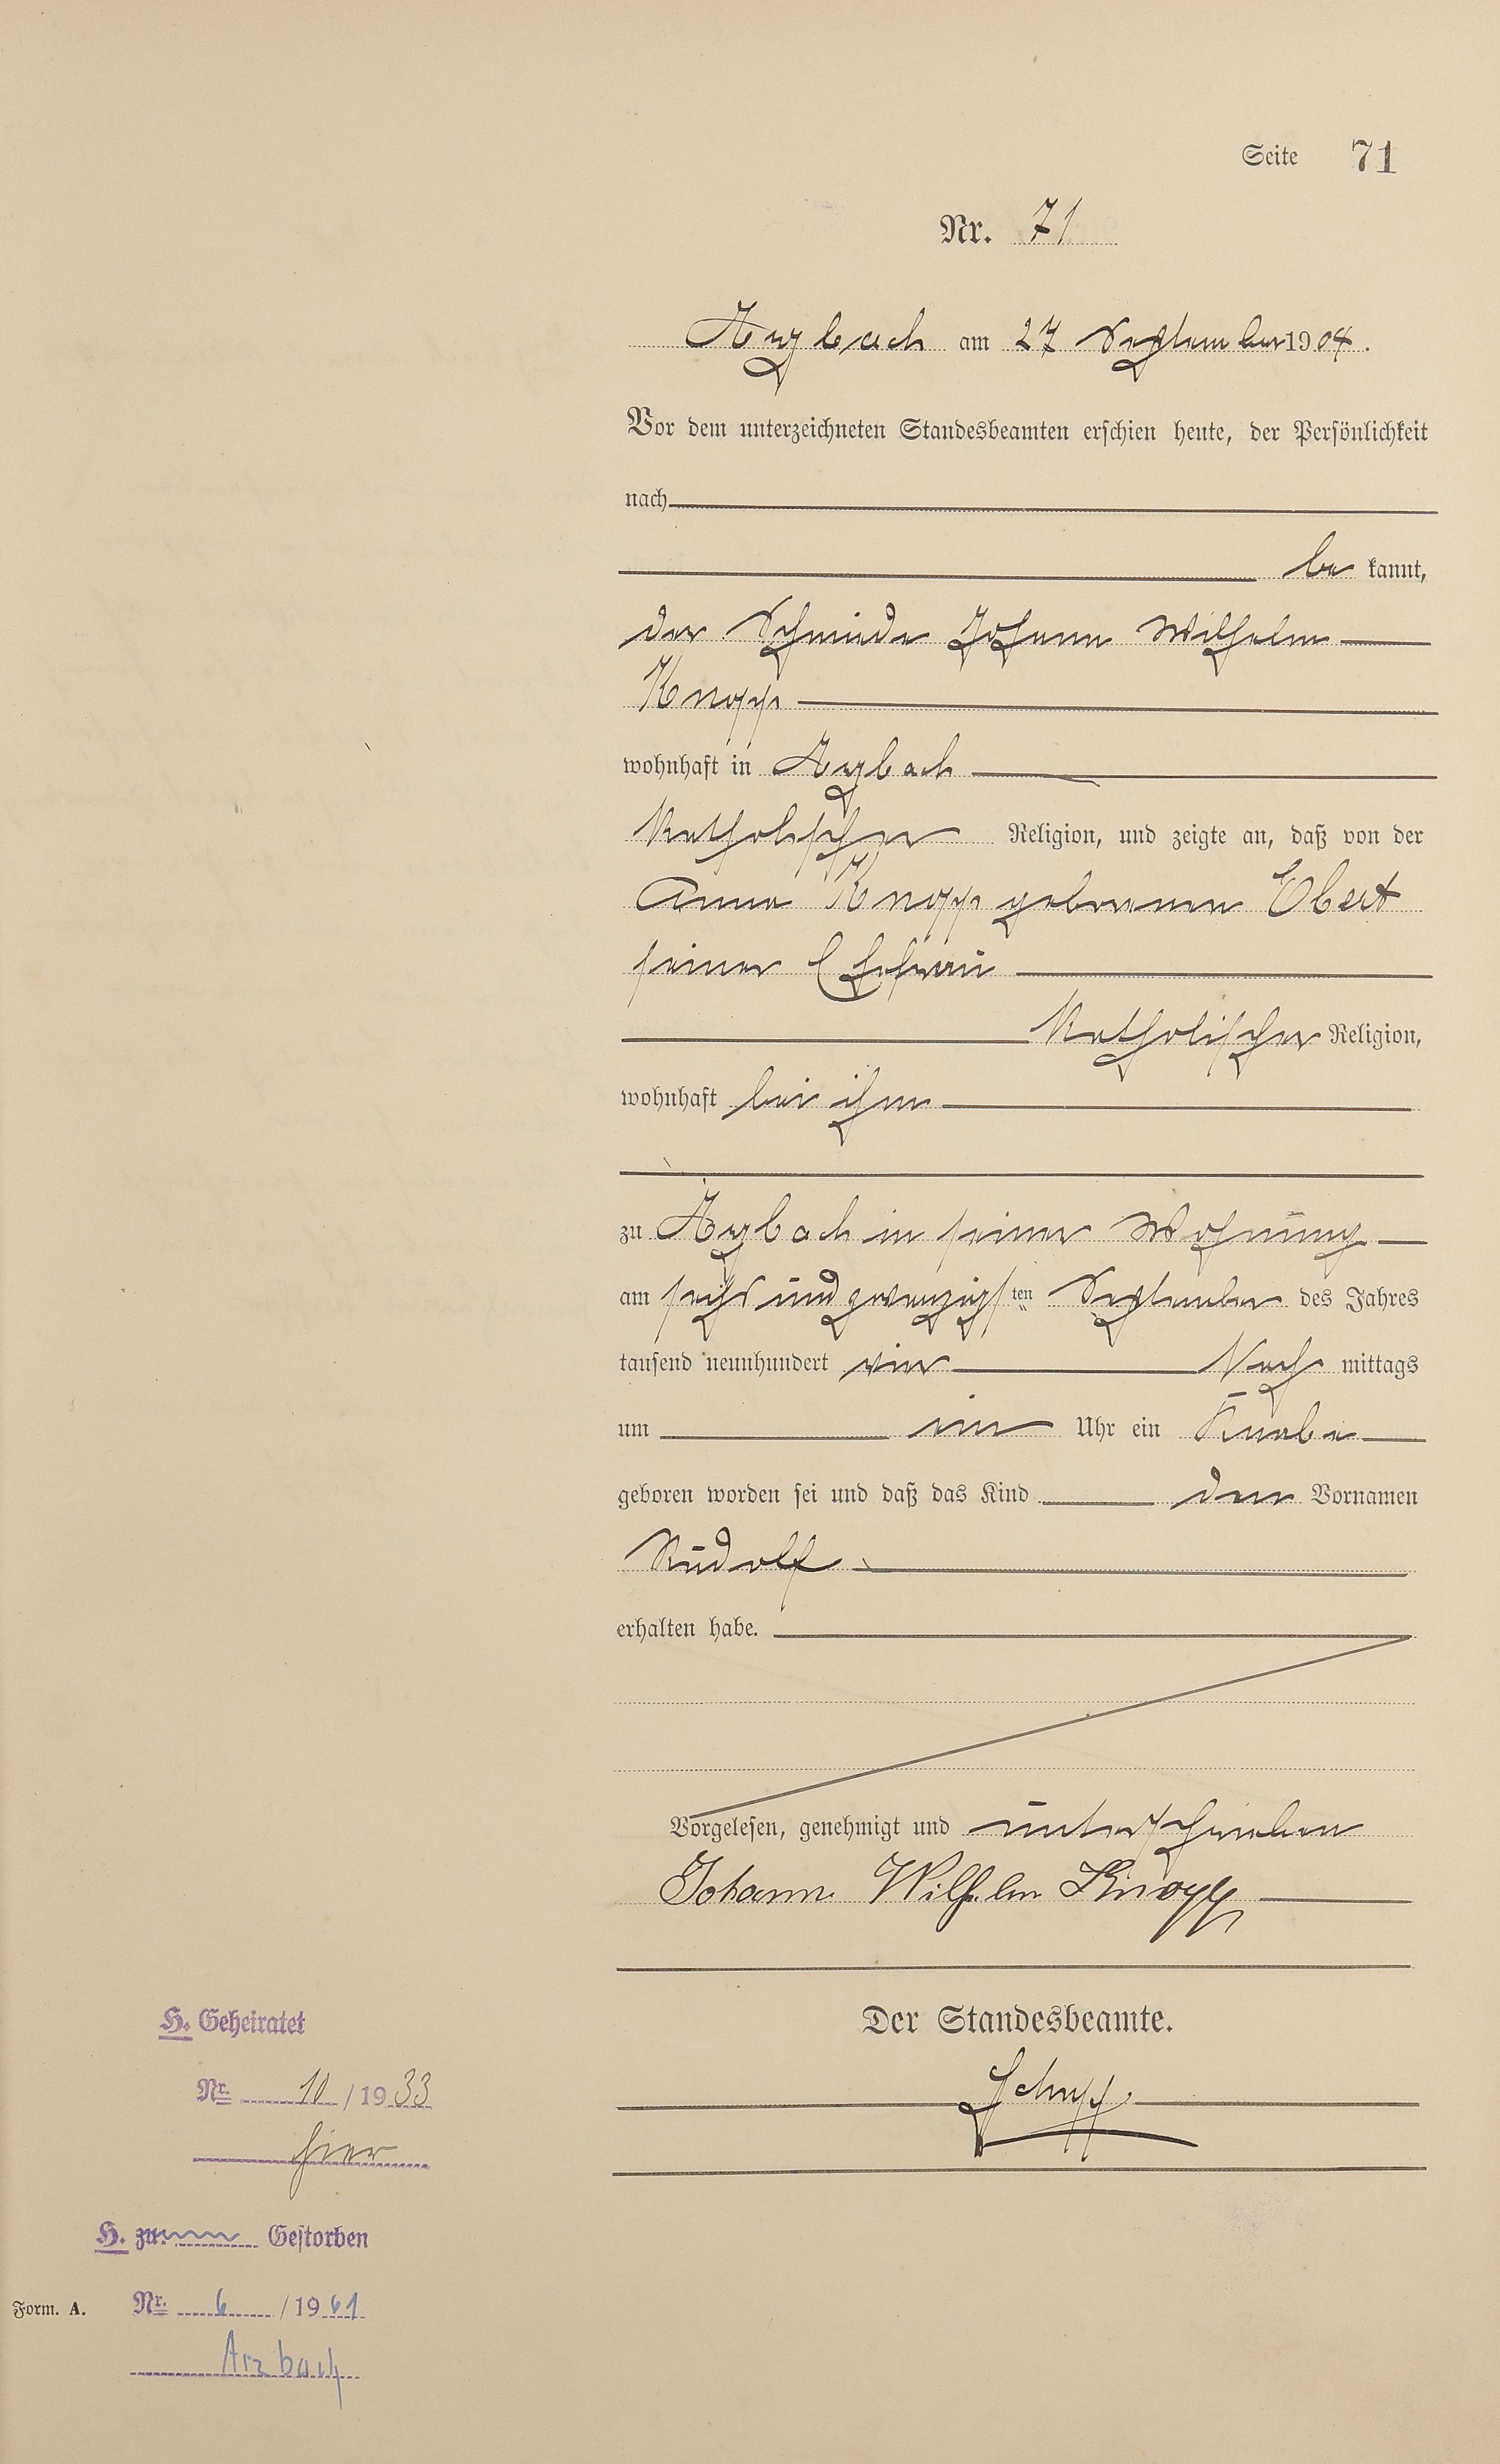 Seite 71
Nr. 71
Arzbach am 27 September 1904.
Vor dem unterzeichneten Standesbeamten erschien heute, der Persönlichkeit
nach
be kannt,
der Schmiede Johann Wilhelm
Knopp
wohnhaft in Arzbach
Katholischer Religion, und zeigte an, daß von der
Anna Knopp geborenen Ebert
seiner Ehefrau
Katholischer Religion,
wohnhaft bei ihm
zu Arzbach in seiner Wohnung
am sechs und zwanzigsten September des Jahres
tausend neunhundert vier Nach mittags
um ein Uhr ein Knabe
geboren worden sei und daß das Kind den Vornamen
Rudolf
erhalten habe.
Vorgelesen, genehmigt und unterschrieben
Johann Wilhelm Knopp
Der Standesbeamte.
H. Geheiratet
Nr. 10 / 1933
hier
H. zu Gestorben
Form. A. Nr. 6 / 1961
Arzbach